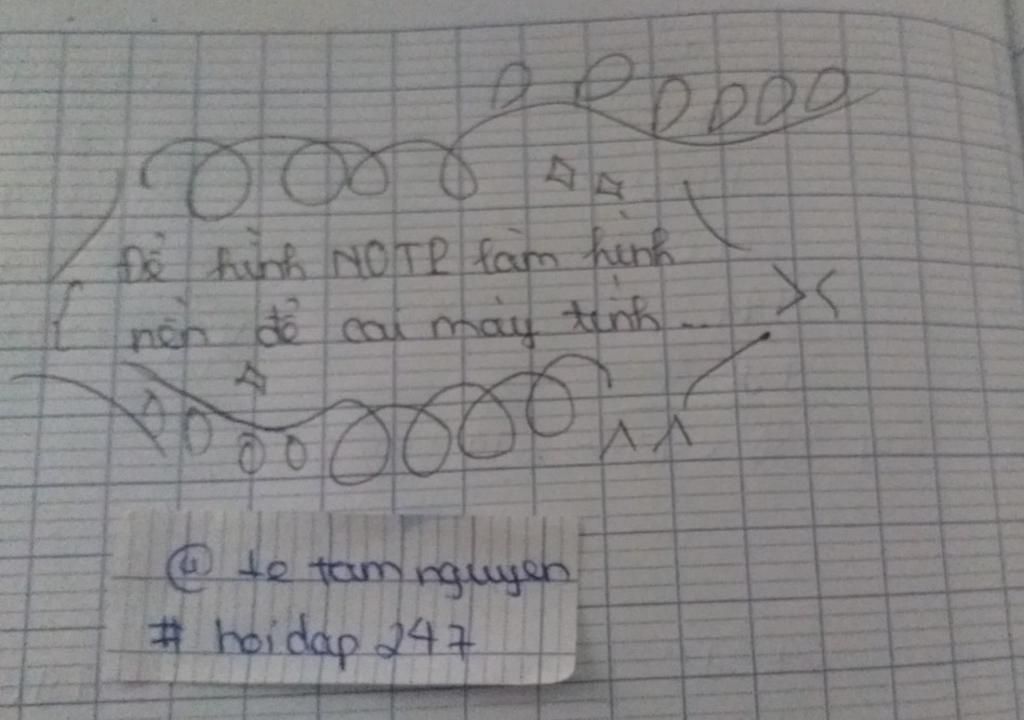 Để hình NOTP làm hình
nền để cai máy tính...
@ te tam nguyen
# hoidap 247